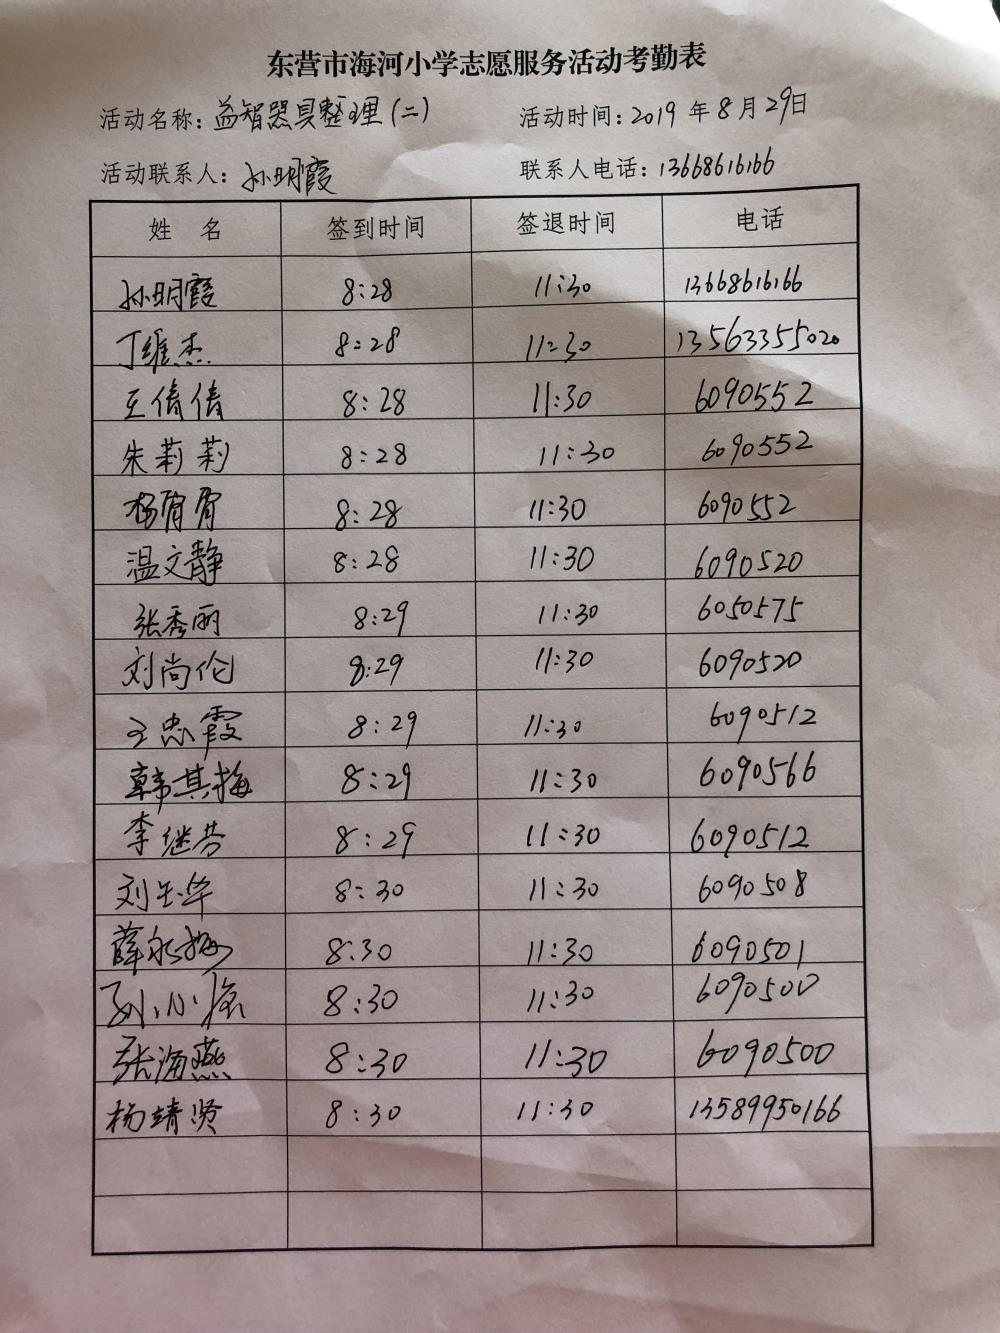 东营市海河小学志愿服务活动考勤表
活动名称：益智器具整理（二） 活动时间：2019年8月29日
活动联系人：孙明霞 联系人电话：13668616166
姓 名 签到时间 签退时间 电话
孙明霞 8:28 11:30 13668616166
丁维杰 8:28 11:30 13563355020
王倩倩 8:28 11:30 6090552
朱莉莉 8:28 11:30 6090552
杨 8:28 11:30 6090552
温文静 8:28 11:30 6090520
张秀丽 8:29 11:30 6050575
刘尚伦 8:29 11:30 6090520
王忠霞 8:29 11:30 6090512
韩其梅 8:29 11:30 6090566
李继芳 8:29 11:30 6090512
刘玉华 8:30 11:30 6090508
薛永梅 8:30 11:30 6090501
小 8:30 11:30 6090500
张海燕 8:30 11:30 6090500
杨靖贤 8:30 11:30 13589950166